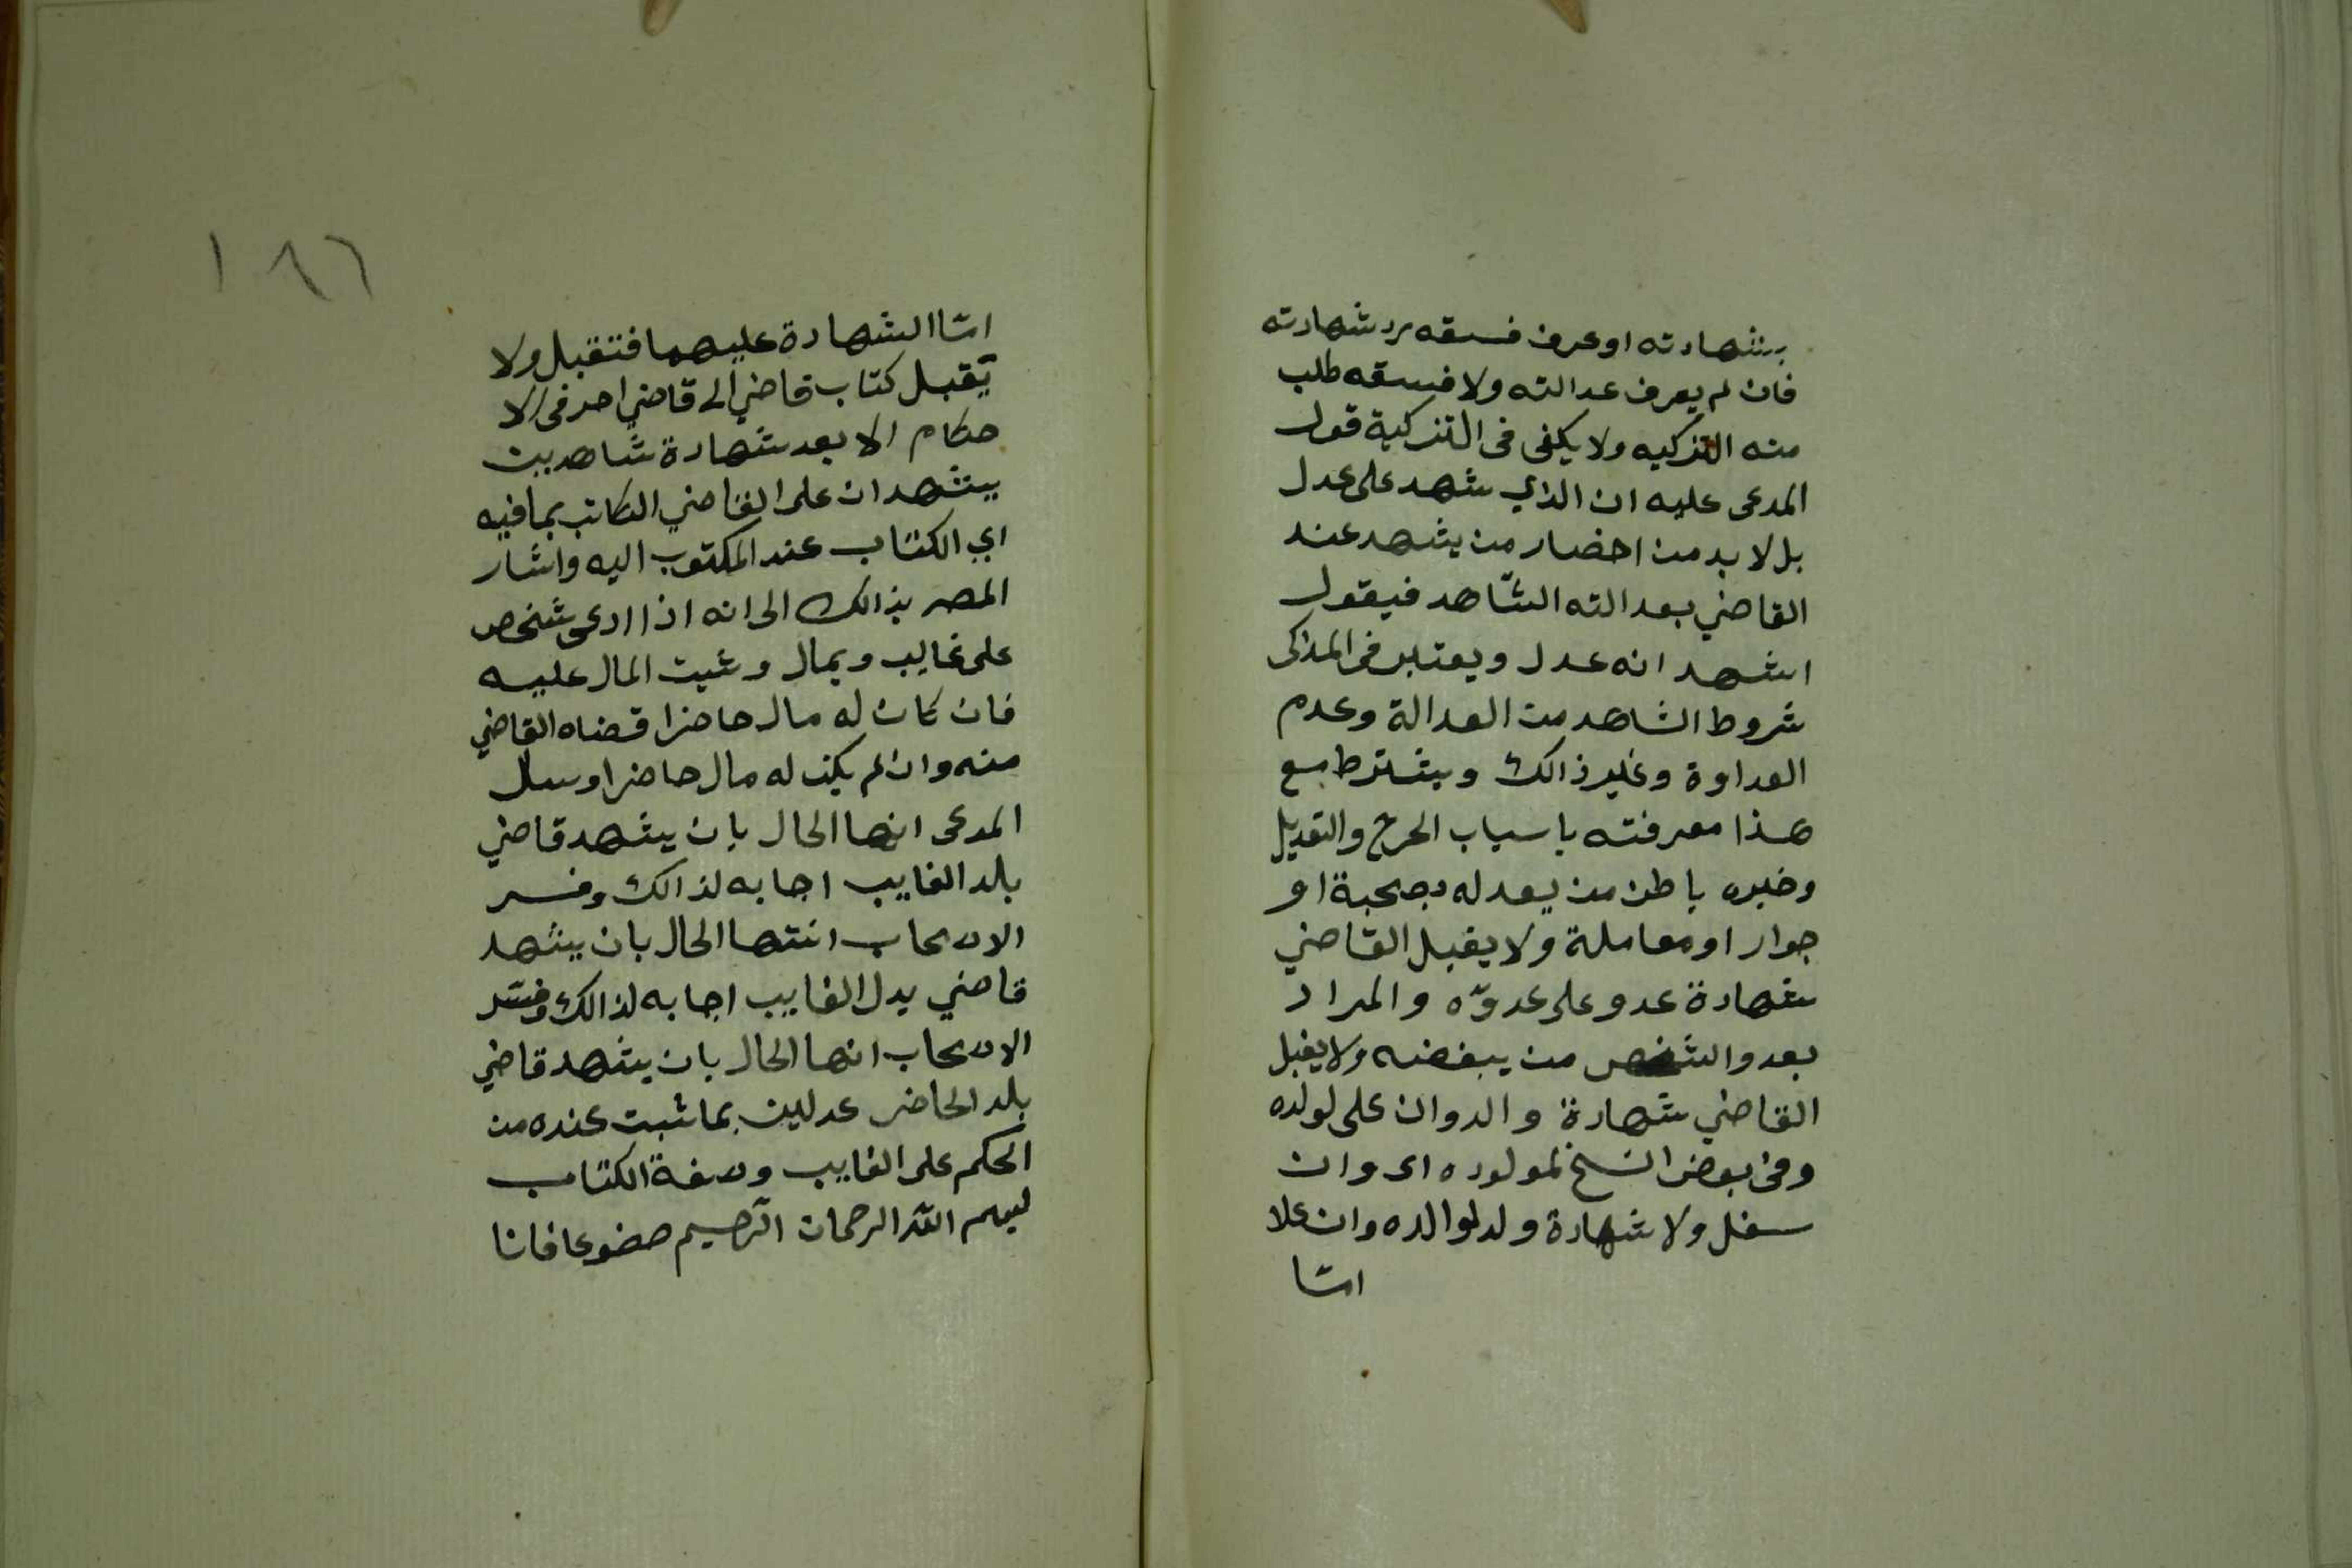 بشهادته او عرف فسقه رد شهادته
فان لم يعرف عدالته ولا فسقه طلب
منه التزكيه ولا يكفى فى التزكية قول
المدعى عليه ان الذي شهد على عدل
بل لا بد من احضار من يشهد عند
القاضي بعدالته الشاهد فيقول
اشهد انه عدل ويعتبر فى المذكى
شروط الشاهد من العدالة وعدم
العداوة وغير ذالك ويشترط مع
هذا معرفته باسباب الحرج والتعديل
وخبره باطن من يعدله بصحبة او
جوار او معاملة ولا يقبل القاضي
شهادة عدو على عدوّه والمراد
بعدو الشخص من يبغضه ولا يقبل
القاضي شهادة والدوان على لولده
وفى بعض النسخ لمولوده اى وان
سفل ولا شهادة ولد لوالده وان علا
امّا
١٨٦
امّا الشهادة عليهما فتقبل ولا
يقبل كتاب قاضي الى قاضي احد فى الا
حكام الا بعد شهادة شاهدين
يشهدان على القاضي الكاتب بما فيه
اي الكتاب عند المكتوب اليه واشار
المصر بذالك الى انه اذا ادعى شخص
على غايب وبمال وثبت المال عليه
فان كان له مال حاضرا قضاه القاضي
منه وان لم يكن له مال حاضرا وسال
المدعى انها الحال بان يشهد قاضي
بلد الغايب اجابه لذالك وفسر
الاصحاب انتها الحال بان يشهد
قاضي بدل الغايب اجابه لذالك وفسّر
الاصحاب انها الحال بان يشهد قاضي
بلد الحاضر عدلين بما ثبت عنده من
الحكم على الغايب وصفة الكتاب
بسم الله الرحمان الرحيم حضر عافانا